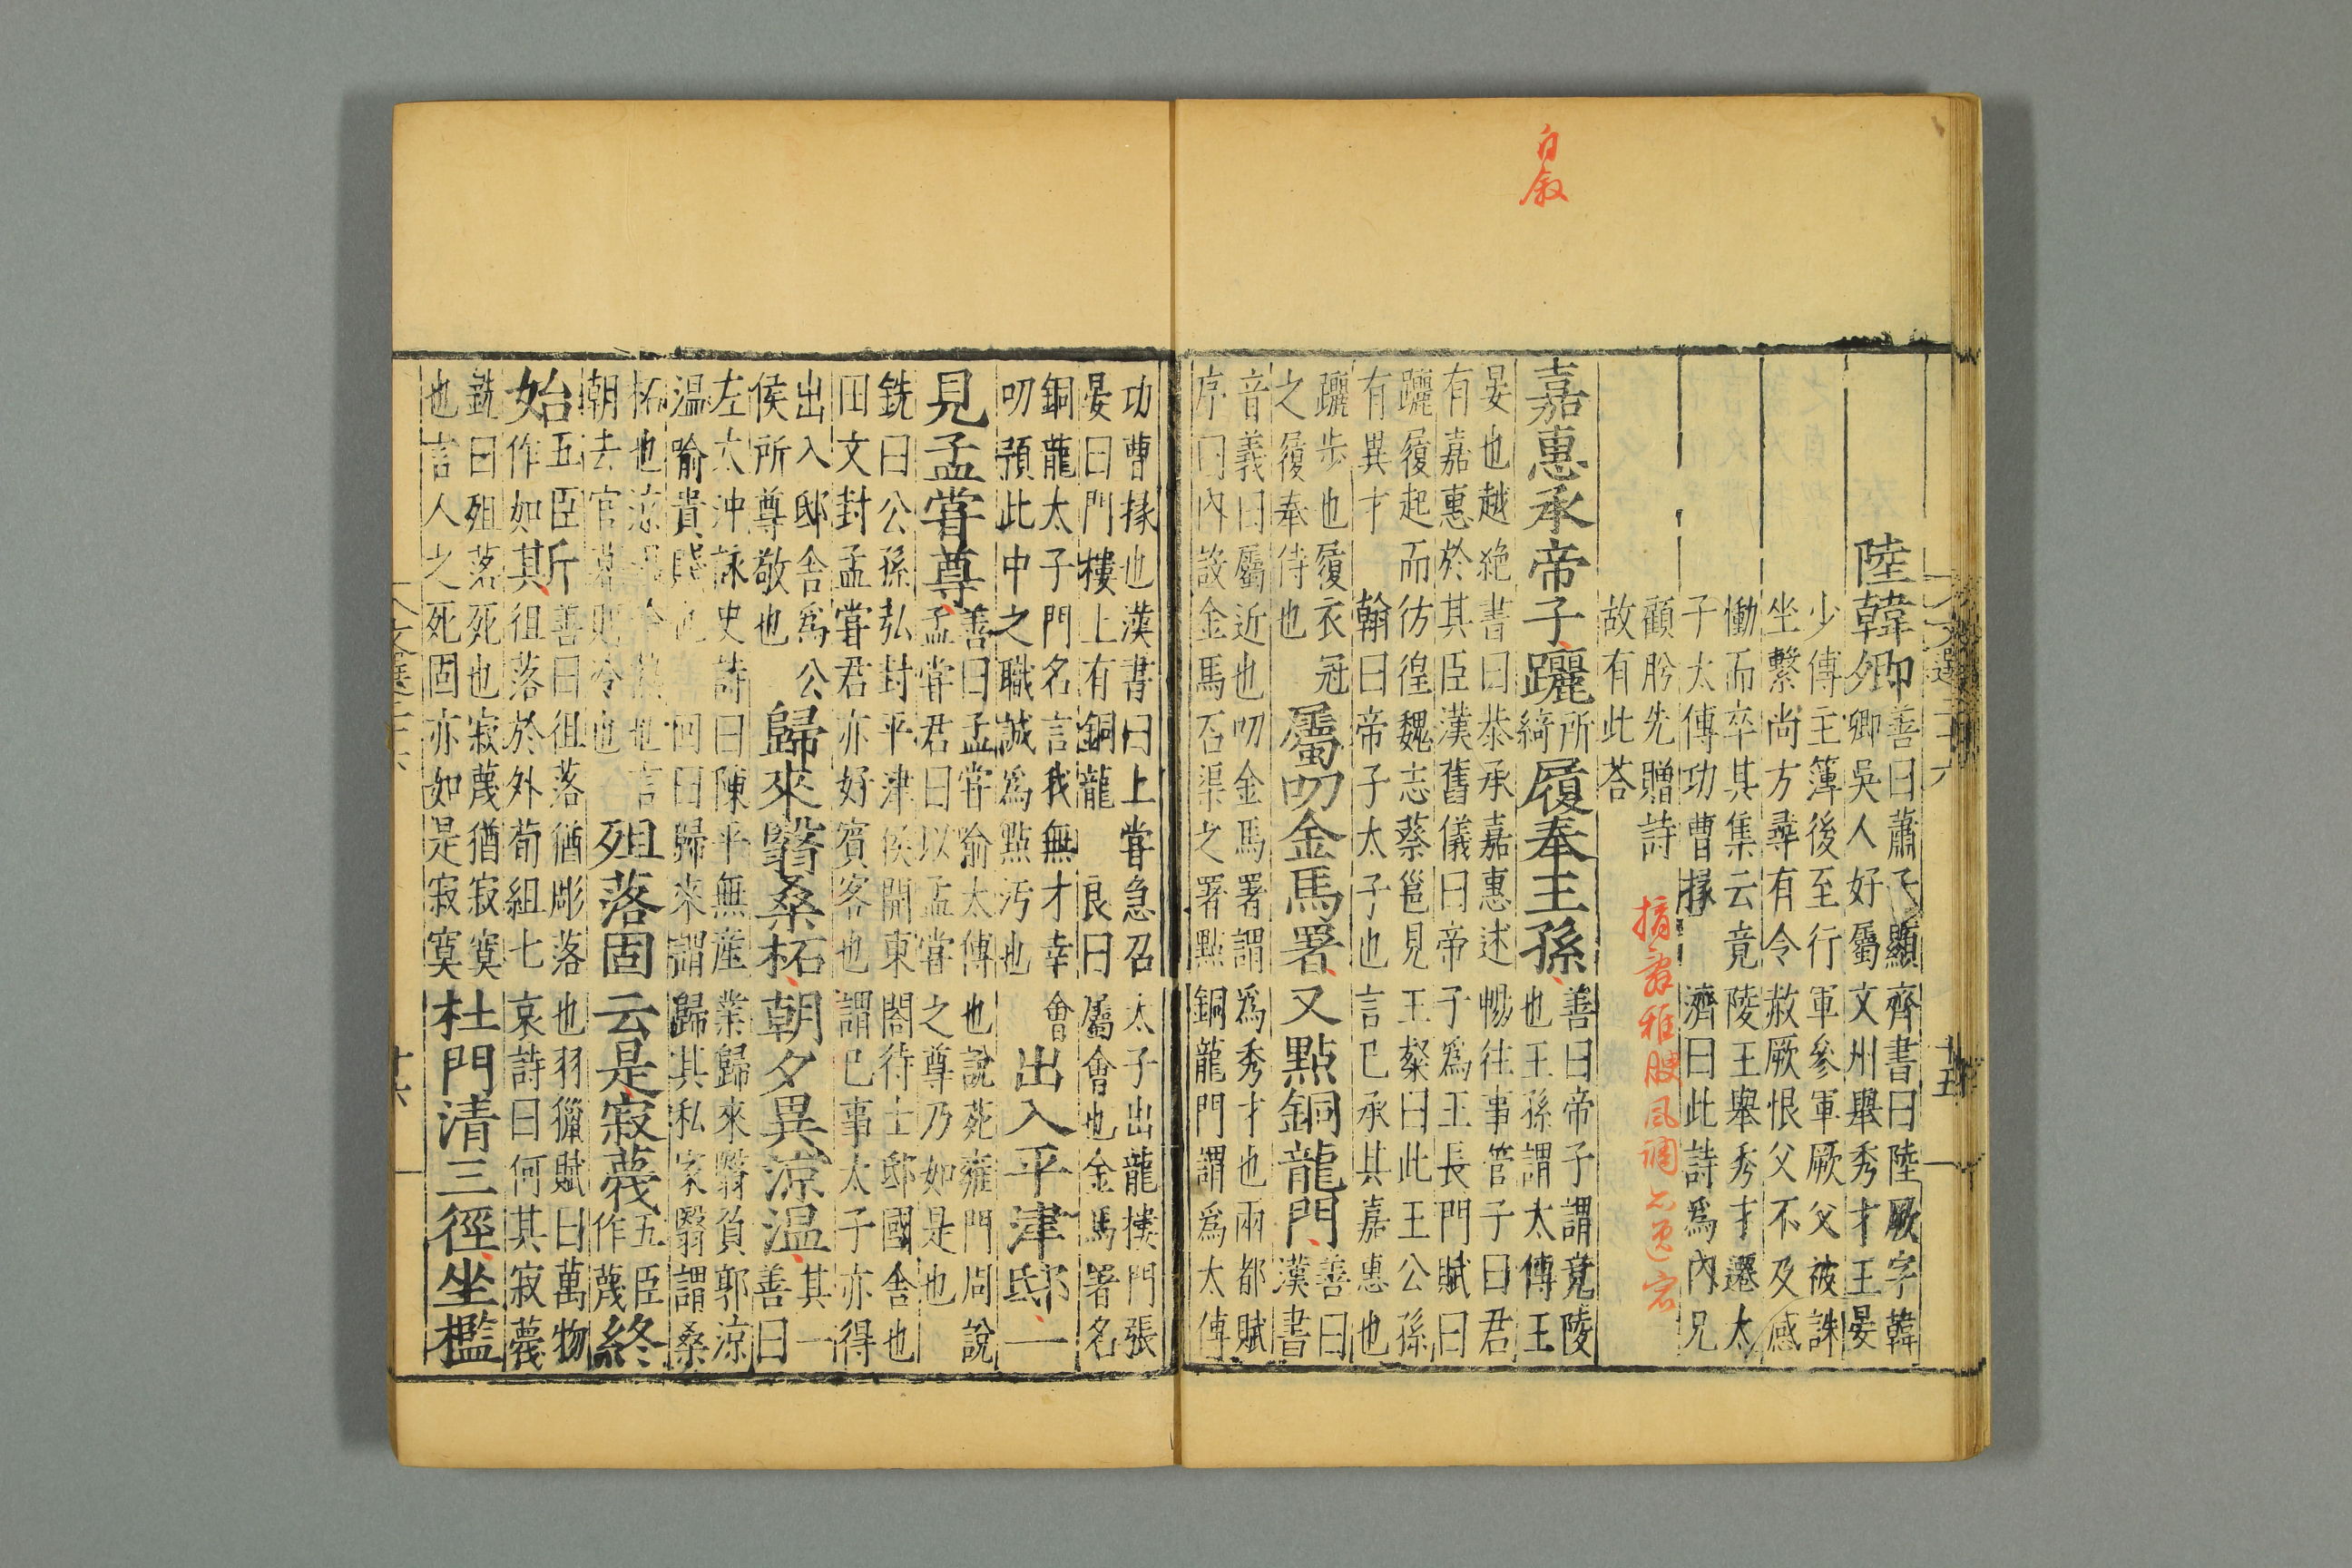 自敘
陸韓卿
善曰蕭子顯齊書曰陸厥字韓
卿吳人好屬文州舉秀才王晏
少傅主簿後至行軍參軍厥父被誅
坐繫尚方尋有令赦厥恨父不及感
慟而卒其集云竟陵王舉秀才遷太
子太傅功曹掾 濟曰此詩爲內兄
顧肹先贈詩
故有此荅
嘉惠承帝子躧所綺履奉王孫
善曰帝子謂竟陵
也王孫謂太傅王
晏也越絶書曰恭承嘉惠述暢往事管子曰君
有嘉惠於其臣漢舊儀曰帝子爲王長門賦曰
躧履起而彷徨魏志蔡邕見王粲曰此王公孫
有異才 翰曰帝子太子也言已承其嘉惠也
躧步也履衣冠
之履奉侍也
屬叨金馬署又點銅龍門
善曰
漢書
音義曰屬近也叨金馬署謂爲秀才也兩都賦
序曰內設金馬石渠之署點銅龍門謂爲太傅
功曹掾也漢書曰上甞急召太子出龍樓門張
晏曰門樓上有銅龍 良曰屬會也金馬署名
銅龍太子門名言我無才幸會
叨預此中之職誠爲點汚也
出入平津邸一
見孟甞尊
善曰孟甞喻太傅也說苑雍門周說
孟甞君曰以孟甞之尊乃如是也
銑曰公孫弘封平津侯開東閤待士邸國舍也
田文封孟甞君亦好賓客也謂已事太子亦得
出入邸舍爲公
侯所尊敬也
歸來翳桑柘朝夕異涼温
其一
善曰
左太沖詠史詩曰陳平無産業歸來翳負郭涼
温喻貴賤也 向曰歸來謂歸其私家翳謂桑
柘也涼温冷熱也言
朝去官暮則冷也
殂落固云是寂蔑
五臣
作蔑
終
始
五臣
作如
斯
其
善曰徂落猶彫落也羽獵賦曰萬物
徂落於外荀組七哀詩曰何其寂蔑
銑曰殂落死也寂蔑猶寂寞
也言人之死固亦如是寂寞
杜門清三徑坐檻